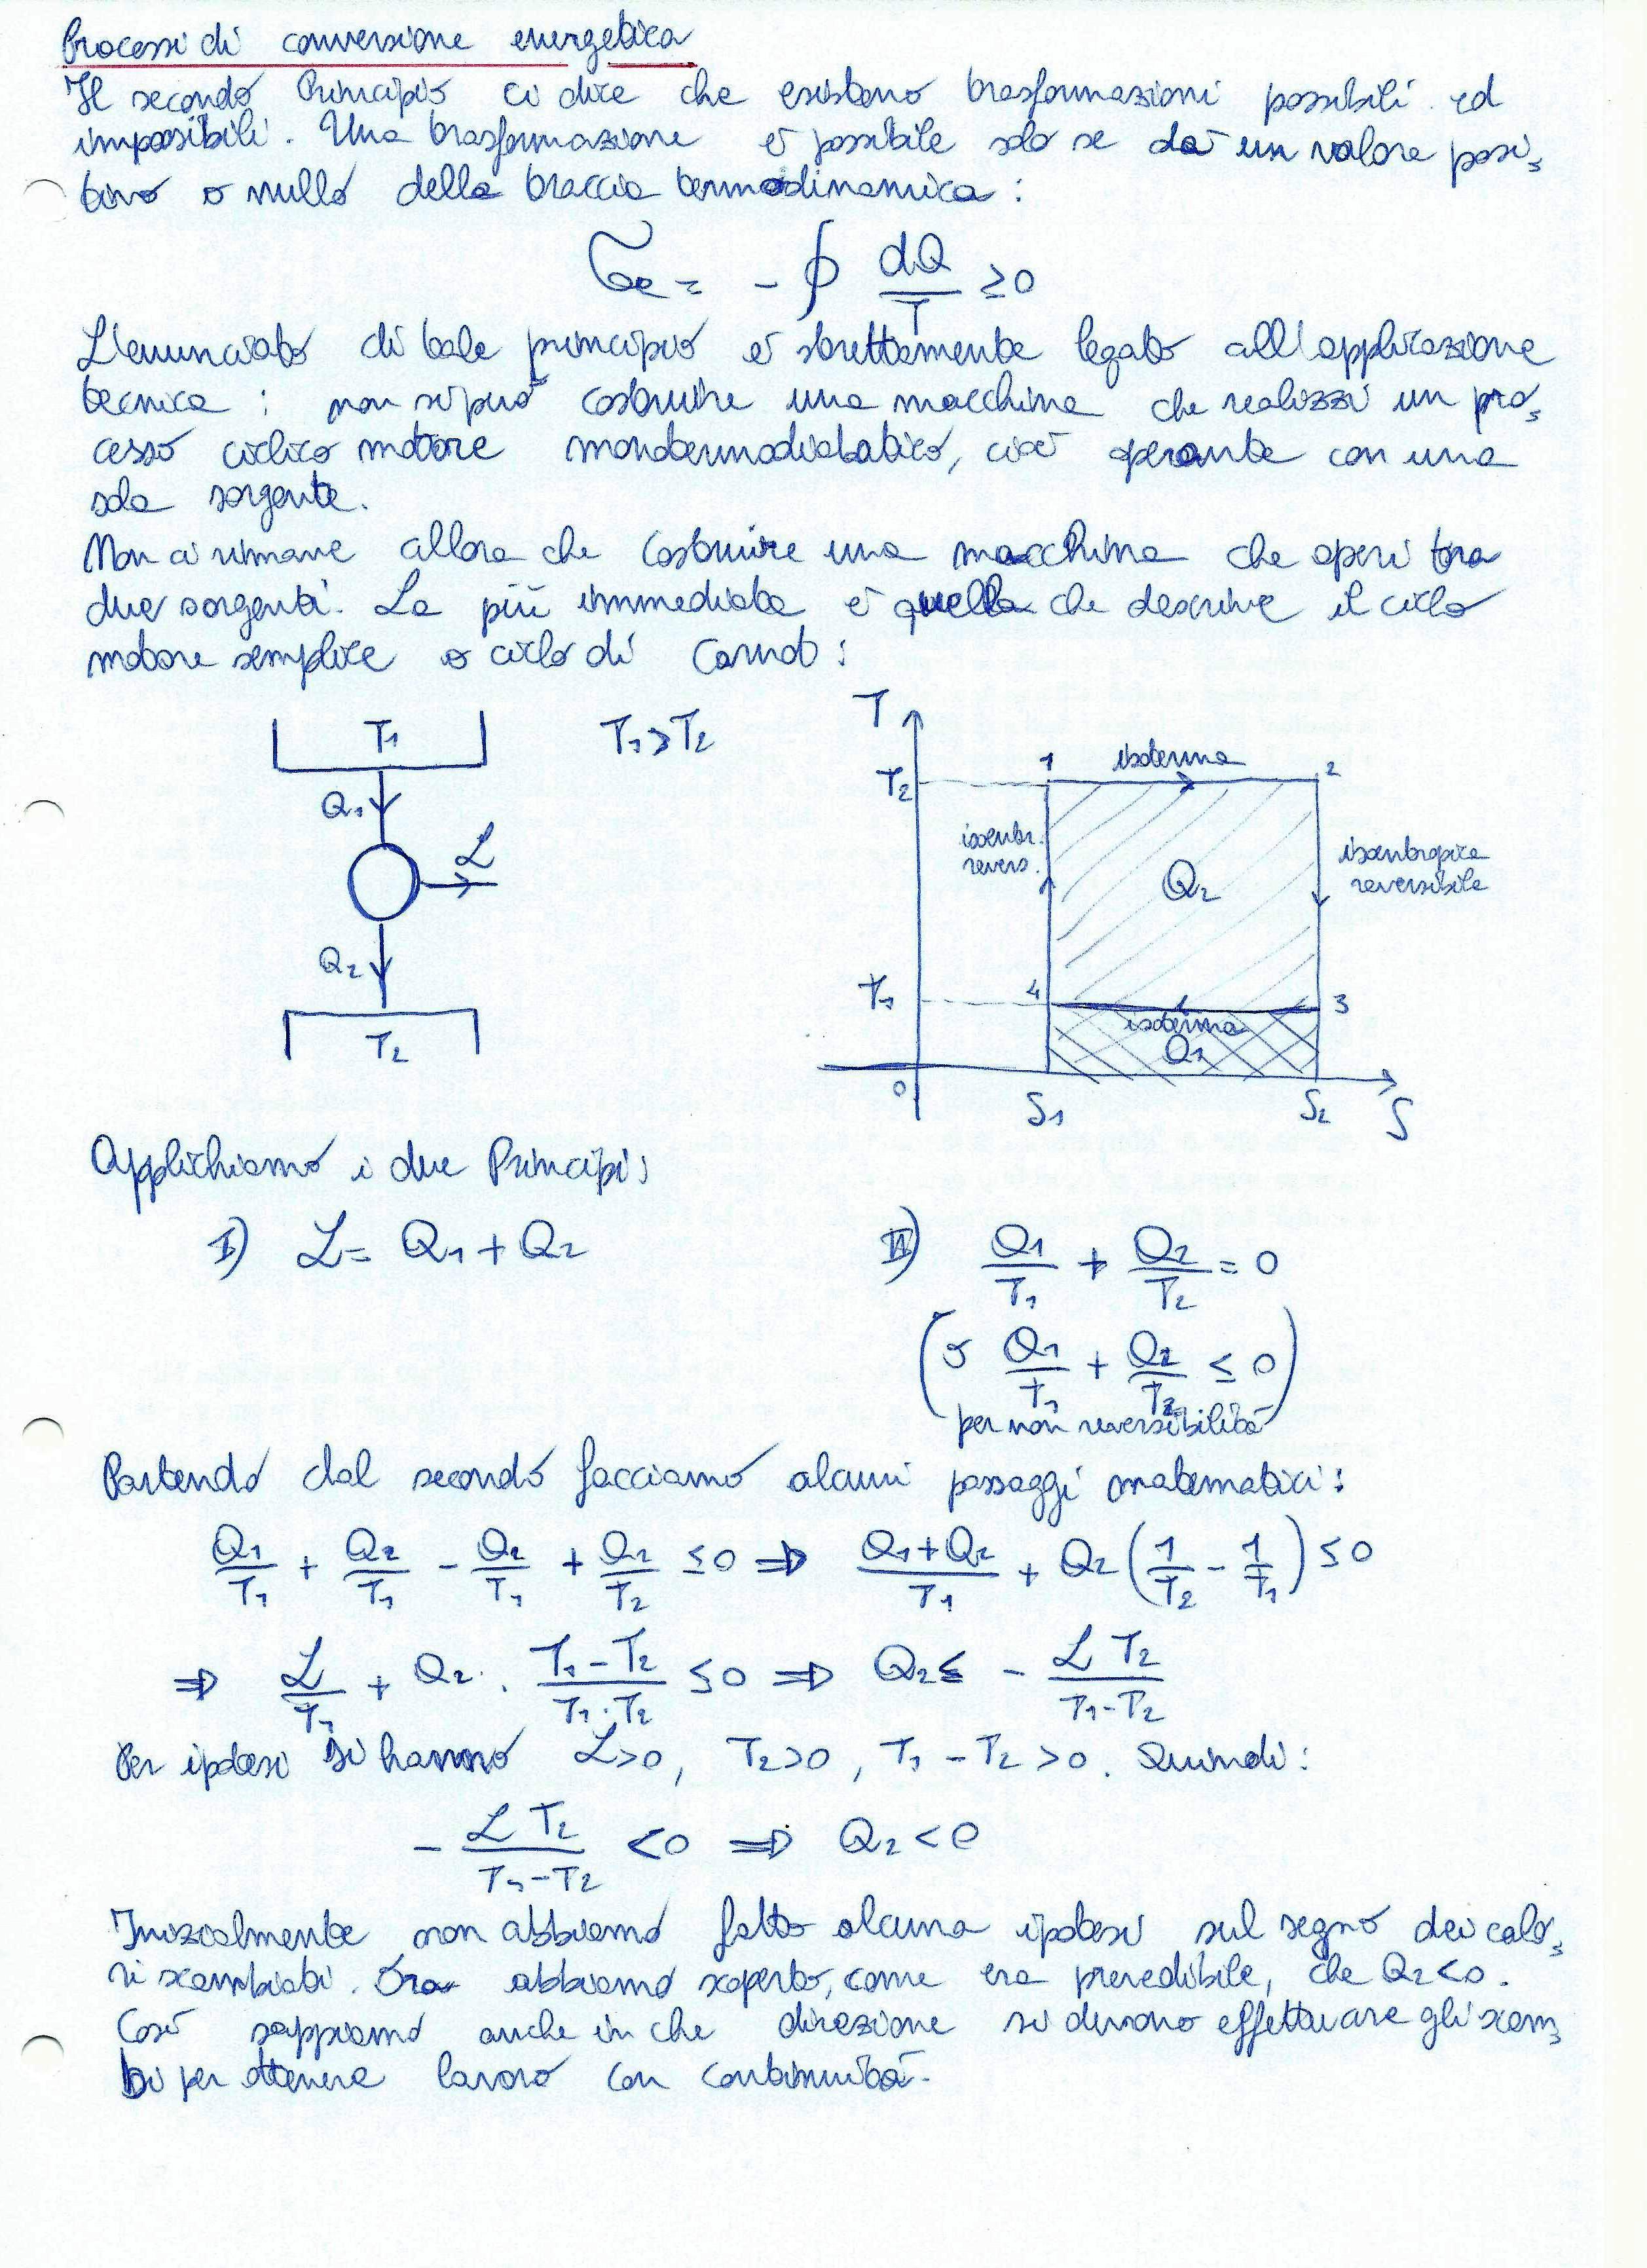 Processi di conversione energetica
Il secondo Principio ci dice che esistono trasformazioni possibili ed
impossibili. Una trasformazione è possibile solo se dà un valore posi-
tivo o nullo della traccia termodinamica:
σe = - ∮ dQ/T ≥ 0
L'enunciato di tale principio è strettamente legato all'applicazione
tecnica: non si può costruire una macchina che realizzi un pro-
cesso ciclico motore monotermodiabatico, cioè operante con una
sola sorgente.
Non ci rimane allora che costruire una macchina che operi tra
due sorgenti. La più immediata è quella che descrive il ciclo
motore semplice o ciclo di Carnot:
T1
T1 > T2
Q1
L
Q2
T2
T
T2
1
isoterma
2
isentr. revers.
Q2
isentropica
reversibile
T1
4
isoterma
3
Q1
0
S1
S2
S
Applichiamo i due Principi:
I) L = Q1 + Q2
II) Q1/T1 + Q2/T2 = 0
(o Q1/T1 + Q2/T2 ≤ 0
per non reversibilità)
Partendo dal secondo facciamo alcuni passaggi matematici:
Q1/T1 + Q2/T1 - Q2/T1 + Q2/T2 ≤ 0 ⇒ (Q1+Q2)/T1 + Q2 (1/T2 - 1/T1) ≤ 0
⇒ L/T1 + Q2 · (T1-T2)/(T1·T2) ≤ 0 ⇒ Q2 ≤ - L T2/(T1-T2)
Per ipotesi si hanno L>0, T2>0, T1-T2>0. Quindi:
- L T2/(T1-T2) < 0 ⇒ Q2 < 0
Inizialmente non abbiamo fatto alcuna ipotesi sul segno dei calo-
ri scambiati. Ora abbiamo scoperto, come era prevedibile, che Q2<0.
Così sappiamo anche in che direzione si devono effettuare gli scam-
bi per ottenere lavoro con continuità.